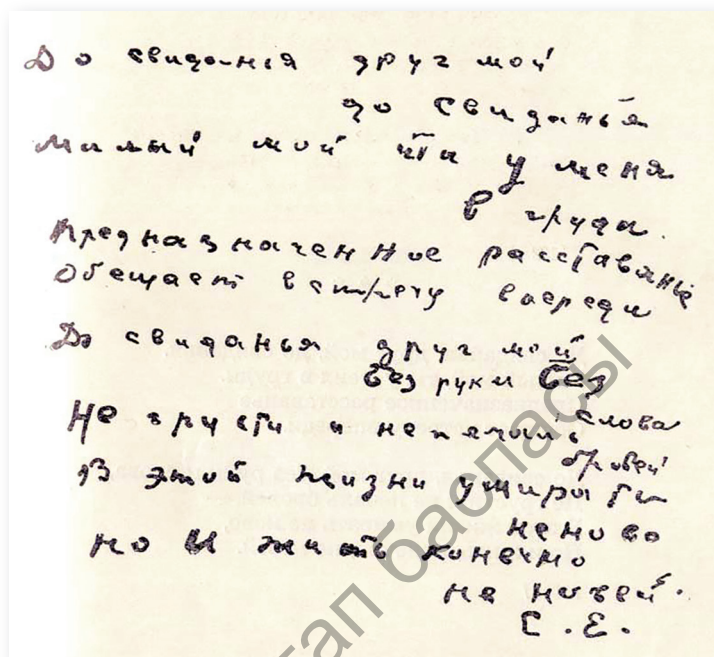 До свиданья друг мой
до свиданья
Милый мой ты у меня
в груди.
Предназначенное расставанье
Обещает встречу впереди
До свиданья друг мой
без руки без
слова
Не грусти и не печаль
бровей
В этой жизни умирать
не ново
Но и жить конечно
не новей.
С.Е.
тап баспасы